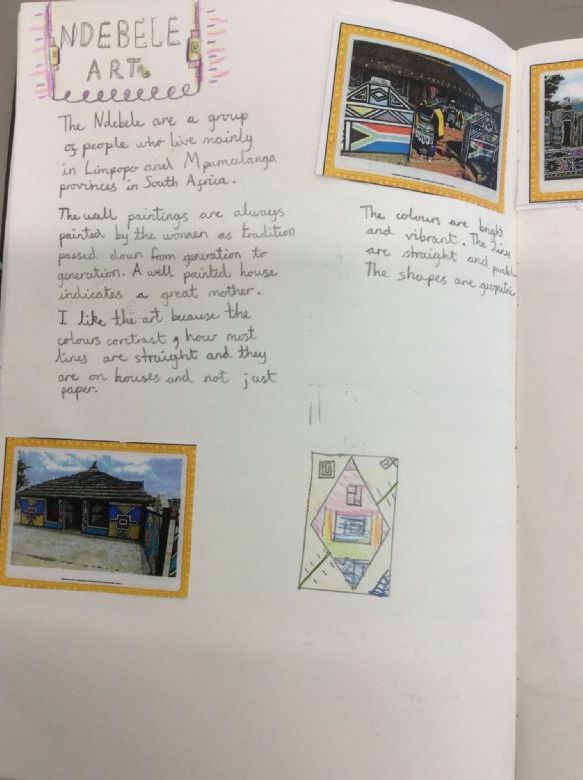 NDEBELE
ART
The Ndebele are a group
of people who live mainly
in Limpopo and Mpumalanga
provinces in South Africa.
The wall paintings are always
painted by the women as tradition
passed down from generation to
generation. A well painted house
indicates a great mother.
I like the art because the
colours contrast & how most
lines are straight and they
are on houses and not just
paper.
The colours are bright
and vibrant. The lines
are straight and
The shapes are